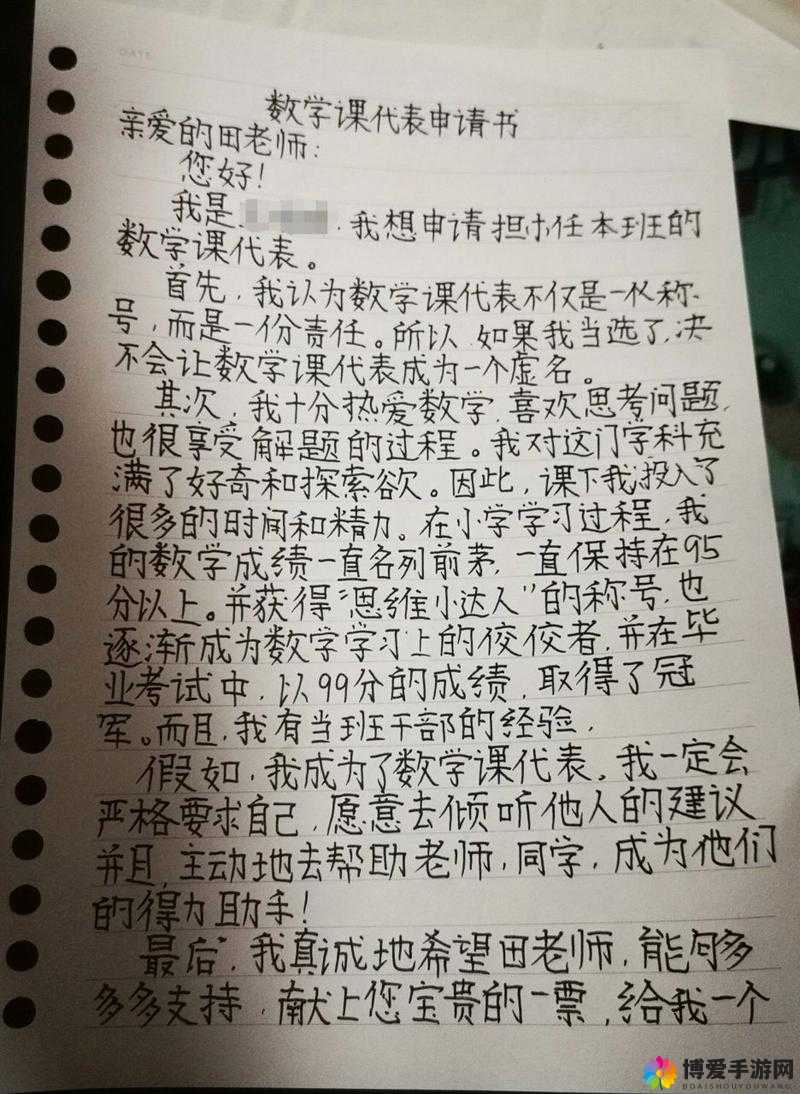 DATE
数学课代表申请书
亲爱的田老师:
您好!
我是 ,我想申请担任本班的
数学课代表。
首先,我认为数学课代表不仅是一份称
号,而是一份责任。所以,如果我当选了,决
不会让数学课代表成为一个虚名。
其次,我十分热爱数学,喜欢思考问题,
也很享受解题的过程。我对这门学科充
满了好奇和探索欲。因此,课下我投入了
很多的时间和精力。在小学学习过程,我
的数学成绩一直名列前茅,一直保持在95
分以上。并获得“思维小达人”的称号,也
逐渐成为数学学习上的佼佼者,并在毕
业考试中,以99分的成绩,取得了冠
军。而且,我有当班干部的经验,
假如,我成为了数学课代表。我一定会
严格要求自己,愿意去倾听他人的建议
并且,主动地去帮助老师,同学,成为他们
的得力助手!
最后,我真诚地希望田老师,能够多
多多支持,献上您宝贵的一票,给我一个
博爱手游网
BOAISHOUYOUWANG